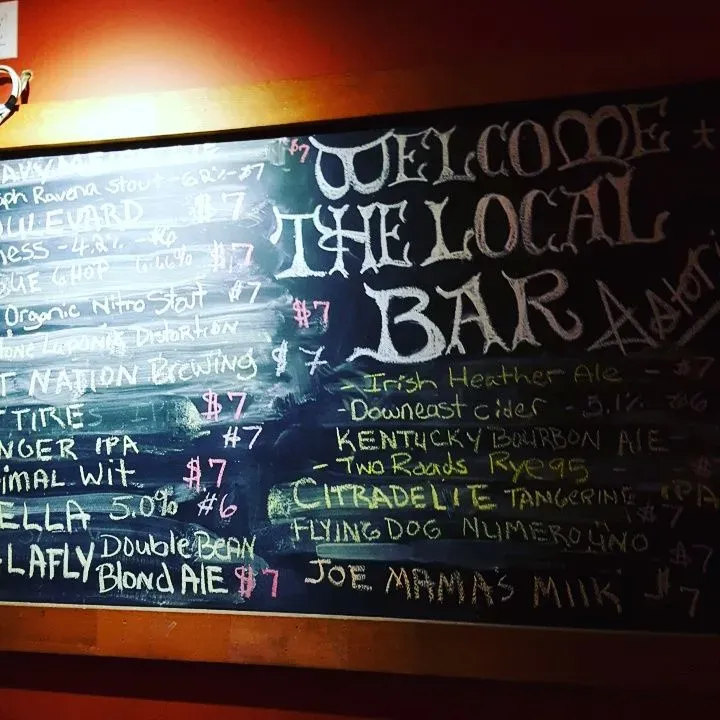 $7
oph Ravena Stout - 6.2% - $7
OULEVARD $7
ness - 4.2% - $6
6.66% $7
Organic Nitro Stout $7
one Luponic Distortion $7
T NATION BREWING $7
TIRE $7
NGER IPA $7
imal Wit $7
ELLA 5.0% $6
LAFLY Double BEAN
Blond ALE $7
WELCOME
THE LOCAL
BAR Astori
- Irish Heather Ale - $7
- Downeast cider - 5.1% $6
KENTUCKY BOURBON ALE -
- Two Roads Rye 95
CITRADELIE TANGERINE IPA
$7
FLYING DOG NUMERO UNO
$7
JOE MAMAS MIlk $7